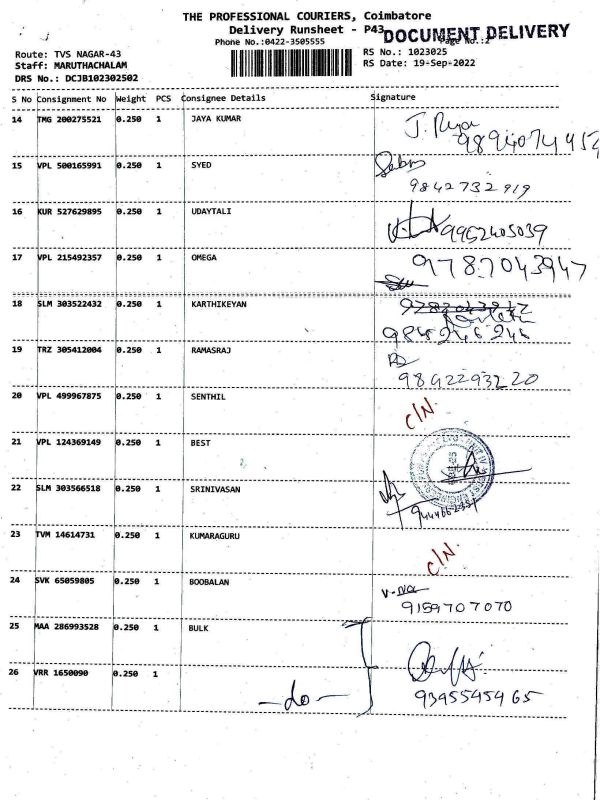 THE PROFESSIONAL COURIERS, Coimbatore
Delivery Runsheet - P43
DOCUMENT DELIVERY
Phone No.:0422-3505555
Page No.:2
Route: TVS NAGAR-43
RS No.: 1023025
Staff: MARUTHACHALAM
RS Date: 19-Sep-2022
DRS No.: DCJB102302502
S No Consignment No Weight PCS Consignee Details Signature
14 TMG 200275521 0.250 1 JAYA KUMAR
15 VPL 500165991 0.250 1 SYED
9842732919
16 KUR 527629895 0.250 1 UDAYTALI
9952405039
17 VPL 215492357 0.250 1 OMEGA
9787043947
18 SLM 303522432 0.250 1 KARTHIKEYAN
19 TRZ 305412004 0.250 1 RAMASRAJ
9892293220
20 VPL 499967875 0.250 1 SENTHIL
C/N.
21 VPL 124369149 0.250 1 BEST
22 SLM 303566518 0.250 1 SRINIVASAN
23 TVM 14614731 0.250 1 KUMARAGURU
C/N.
24 SVK 65059805 0.250 1 BOOBALAN
9159707070
25 MAA 286993528 0.250 1 BULK
26 VRR 1650090 0.250 1
-do-
9395545965